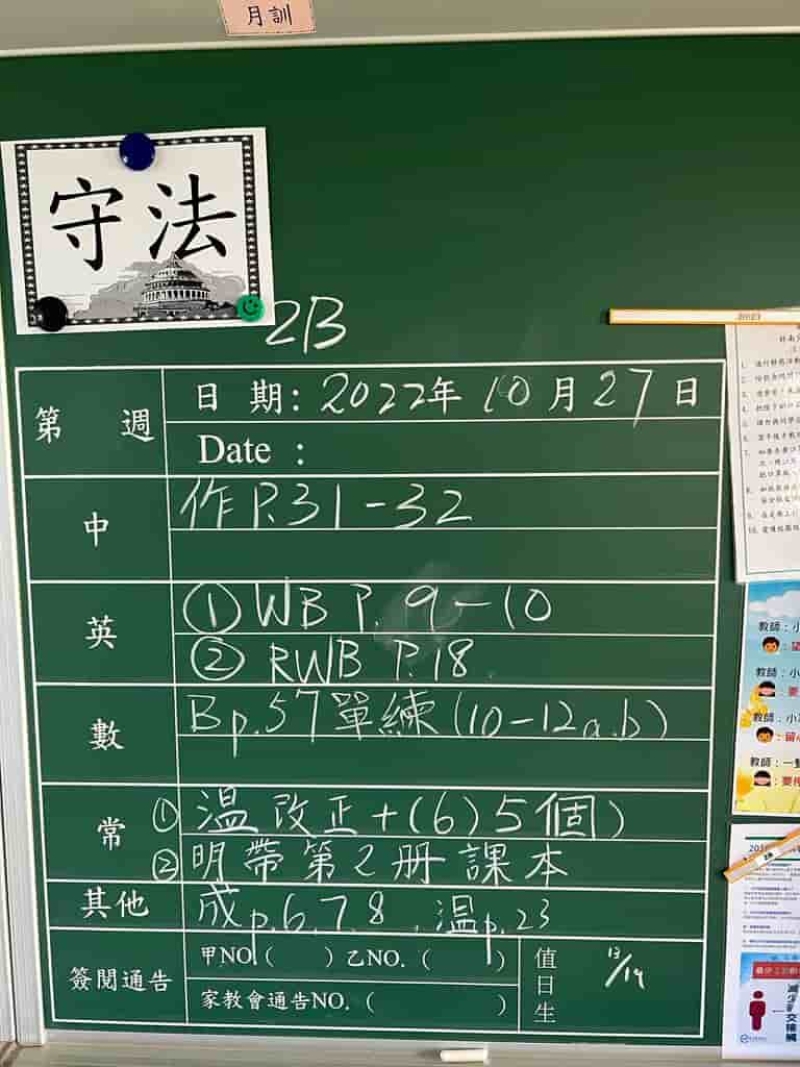 月訓
守法
2B
第 週
日 期: 2022年 10月27日
Date :
中
作P.31-32
英
① WB P. 9-10
② RWB P.18
數
Bp.57單練(10-12a.b)
常
① 温 改正+(6)5個)
② 明帶第2册課本
其他
成p.6.7.8 .温p.23
簽閱通告
甲NO.( ) 乙NO. ( )
家教會通告NO. ( )
值日生
13/19
教師:小
教師:小
教師:小
教師:一